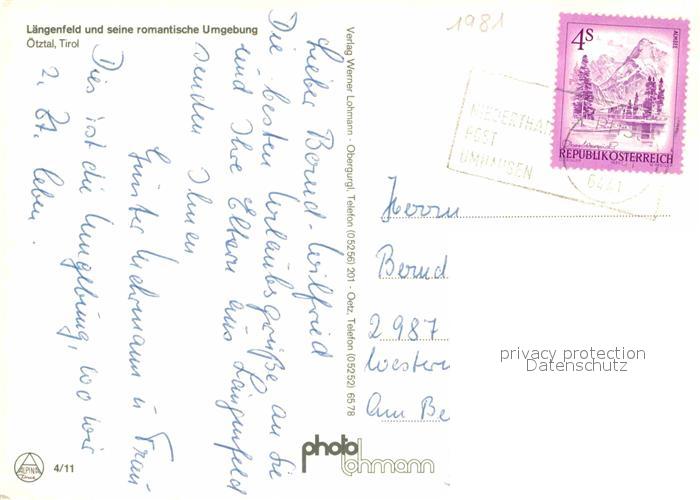 Längenfeld und seine romantische Umgebung
Ötztal, Tirol
1981
4S
REPUBLIK ÖSTERREICH
NIEDERTHAI
POST
UMHAUSEN
6441
Lieber Bernd-Wilfried
Die besten Urlaubsgrüße an Sie
und Ihre Eltern aus Längenfeld
senden Ihnen
Günter und Frau
Dies ist die Umgebung, wo wir
z. Zt. leben.
Verlag Werner Lohmann - Obergurgl, Telefon (05256) 201 - Oetz, Telefon (05252) 6578
Herrn
Bernd
2987
Western
Am Be
privacy protection
Datenschutz
photo
lohmann
ALPINA
4/11